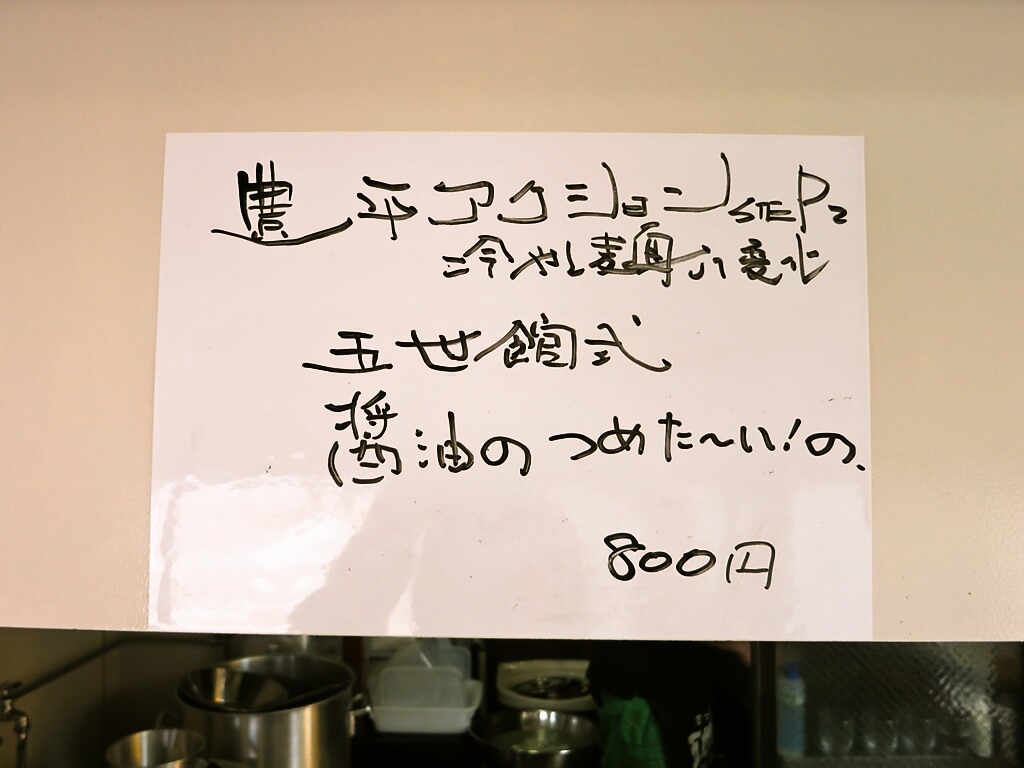 豊平アクションSTEP2
冷やし麺八変化
五世館式
醤油のつめた〜い!の、
800円